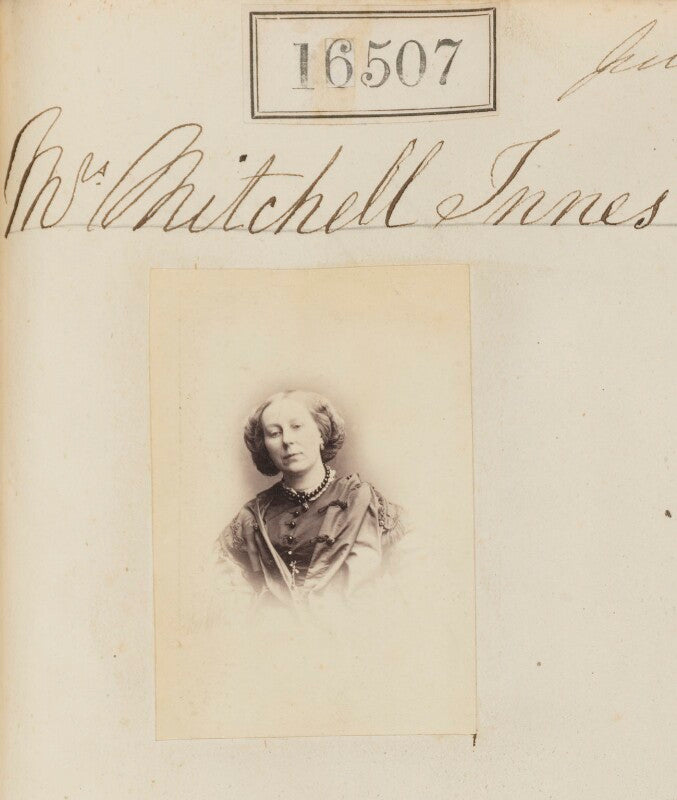 16507
Mrs. Mitchell Innes